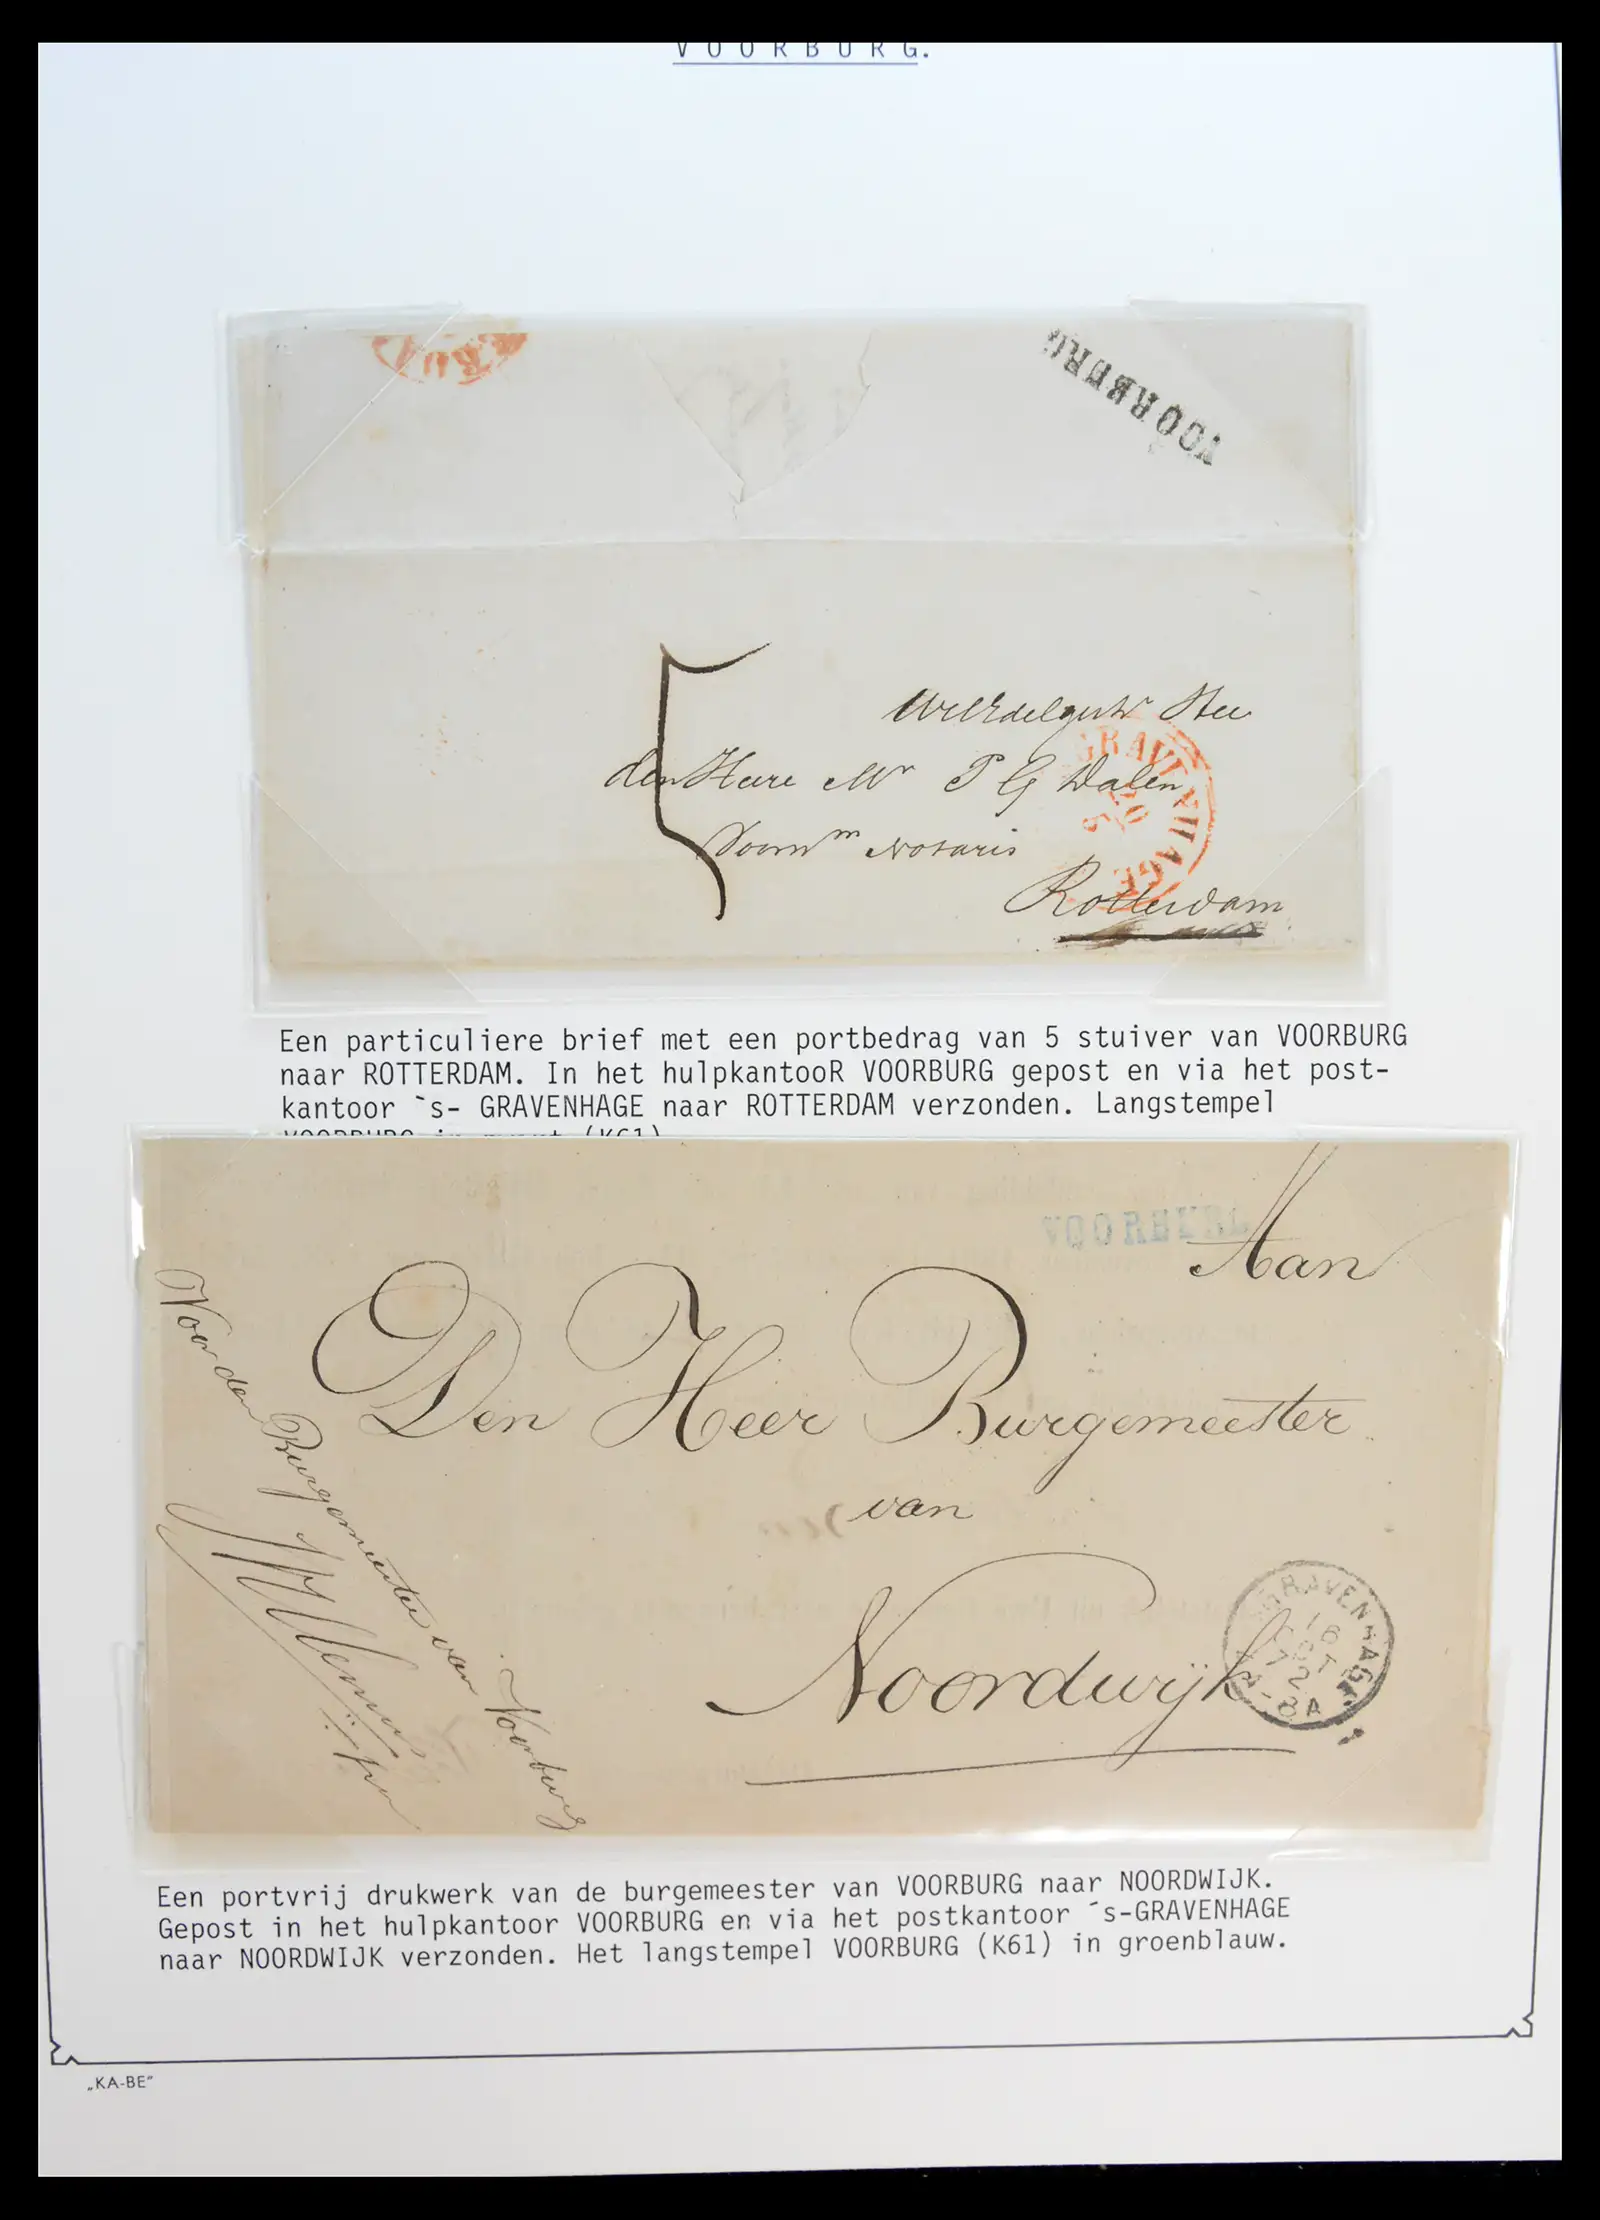 VOORBURG.
VOORBURG
den Heere Mr P G Dalen
Notaris
GRAVENHAGE
20
5
Rotterdam
5
Een particuliere brief met een portbedrag van 5 stuiver van VOORBURG
naar ROTTERDAM. In het hulpkantooR VOORBURG gepost en via het post-
kantoor `s- GRAVENHAGE naar ROTTERDAM verzonden. Langstempel
VOORBURG in zwart (K61)
VOORBURG
Aan
Den Heer Burgemeester
van
Noordwijk
Voor den Burgemeester van Voorburg
GRAVENHAGE
16
OCT
72
-8A
Een portvrij drukwerk van de burgemeester van VOORBURG naar NOORDWIJK.
Gepost in het hulpkantoor VOORBURG en via het postkantoor ´s-GRAVENHAGE
naar NOORDWIJK verzonden. Het langstempel VOORBURG (K61) in groenblauw.
„KA-BE"